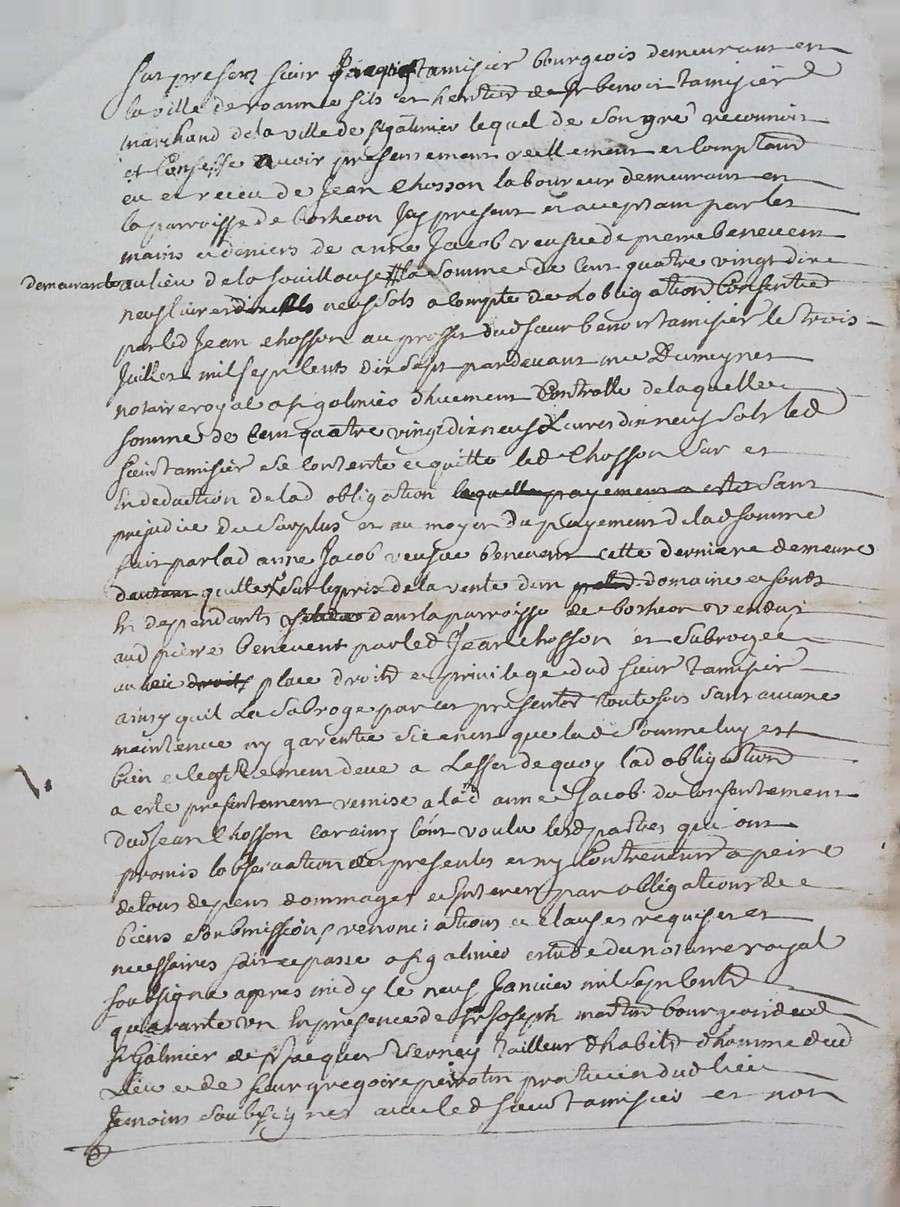 fut present sieur Jacques tamisier bourgeois demeurant en
la ville de roanne fils et heritier de sr benoit tamisier
marchand de la ville de st galmier lequel de son gré reconnoit
et confesse avoir presentement reellement et comptand
eu et receu de Jean Chosson laboureur demeurant en
la parroisse de bosheon Icy present et acceptant par les
mains et deniers de anne Jacob veufve de pierre benevent
demeurante au lieu de la fouillouse # la somme de cent quatre vingt dix
neuf livres dix neuf sols a compte de Lobligation Consentie
par led Jean chosson au proffit dud sieur benoit tamisier le trois
Juillet mil sept cents dix sept pardevant me Dumeynet
notaire royal a st galmier dhuement Controlle de laquelle
somme de cent quatre vingt dix neuf Livres dix neuf sols led
sieur tamisier se contente et quitte led Chosson Sur et
In deduction de lad obligation lequelle payement a esté sans
prejudice du surplus et au moyen du payement de lad somme
fait par lad anne Jacob veufve benevent cette derniere demeure
dautant quitte sur le prix de la vente dun domaine et fonds
In dependants situes dans la parroisse de bosheon vendus
aud pierre benevent par led Jean chosson et subrogee
au lieu droits place droits et privilege dud sieur tamisier
ainsy quil La subroge par ces presentes toutefois sans aucune
maintenue ny garentie si ce nest que lad somme luy est
bien et legitimement deue a Leffet de quoy lad obligation
a esté presentement remise a lad anne Jacob du consentement
dud Jean Chosson car ainsy lont voulu lesd parties qui ont
promis lobservation des presentes et ny Contrevenir a peine
de tous depens dommages et interets par obligations de
biens soubmissions renonciations et clauses requises et
necessaires fait et passé a st galmier etude du notaire royal
soubsigné appres midy le neuf Janvier mil sept cents
quarante un In presence de sr Joseph bourgeois dud
st Galmier de sr Jacques Verney tailleur dhabits dhomme dud
Lieu et de sieur gregoire peirotin praticien dud lieu
temoins soubsignes avec led sieur tamisier et non